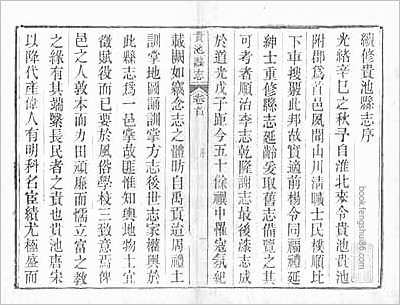 續修貴池縣志序
光緒辛巳之秋予自淮北來令貴池貴池
附郡爲首邑風聞山川清曠士民樸順比
下車搜羅此邦故實適前楊令同福禮延
紳士重修縣志延齡爰取舊志備覽之其
可考者順治李志乾隆謝志最後漆志成
於道光戊子距今五十餘禩中罹寇氛紀
貴池縣志 卷首
序
載闕如竊念志之體昉自禹貢迨周禮土
訓掌地圖誦訓掌方志後世志家權輿於
此縣志爲一邑掌故匪惟知輿地物土宜
徵賦役而已要於風俗學校三致意焉俾
邑之人敦本而力田頑廉而懦立富之教
之緣有其端綮長民者之責也貴池唐宋
以降代產偉人有明科名宦績尤極盛而
book.tengshu86.com